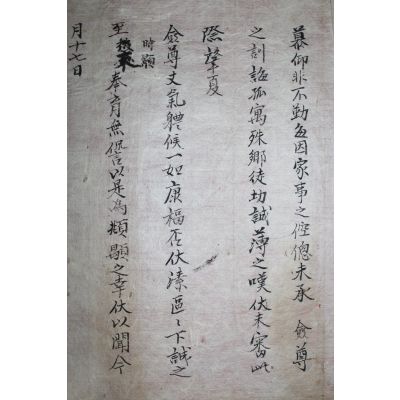 慕仰非不勤而因家事之倥傯未承 僉尊
之訓誨孤寓殊鄉徒切誠薄之嘆伏未審此
際肇夏
僉尊丈氣體候一如康福否伏溱區〻下誠之
至 奉 無 以是為類 之幸伏以聞今
時願
月十七日